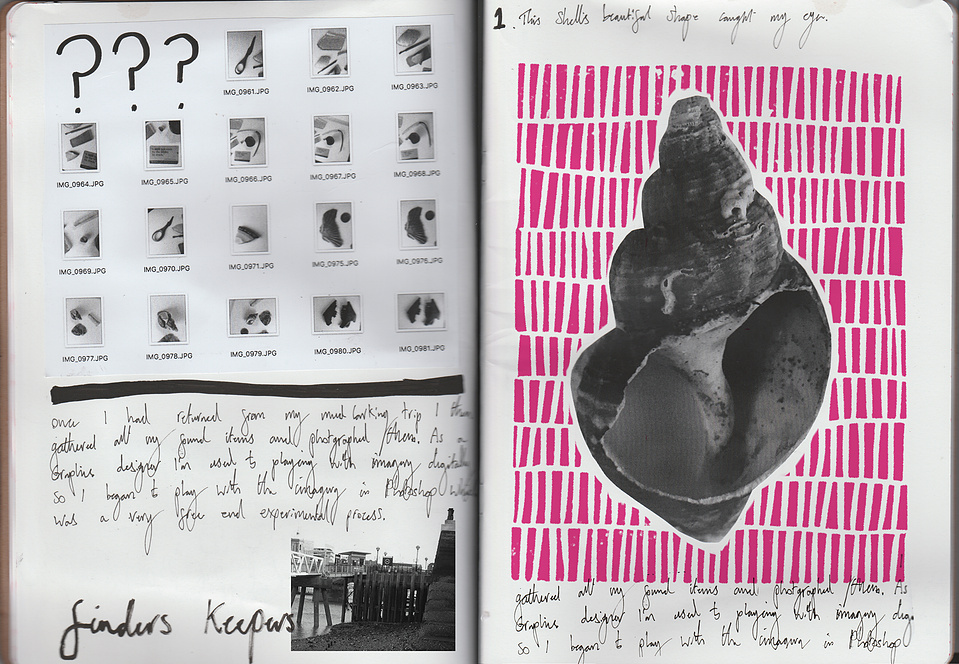 ? ? ?
IMG_0961.JPG IMG_0962.JPG IMG_0963.JPG
IMG_0964.JPG IMG_0965.JPG IMG_0966.JPG IMG_0967.JPG IMG_0968.JPG
IMG_0969.JPG IMG_0970.JPG IMG_0971.JPG IMG_0975.JPG IMG_0976.JPG
IMG_0977.JPG IMG_0978.JPG IMG_0979.JPG IMG_0980.JPG IMG_0981.JPG
once I had returned from my mud larking trip I then
gathered all my found items and photgraphed them. As a
Graphic designer I'm used to playing with imagery digitally
so I began to play with the imagery in Photoshop which
was a very free and experimental process.
finders Keepers
1. This shells beautiful shape caught my eye.
gathered all my found items and photgraphed them. As
Graphic designer I'm used to playing with imagery
so I began to play with the imagery in Photoshop